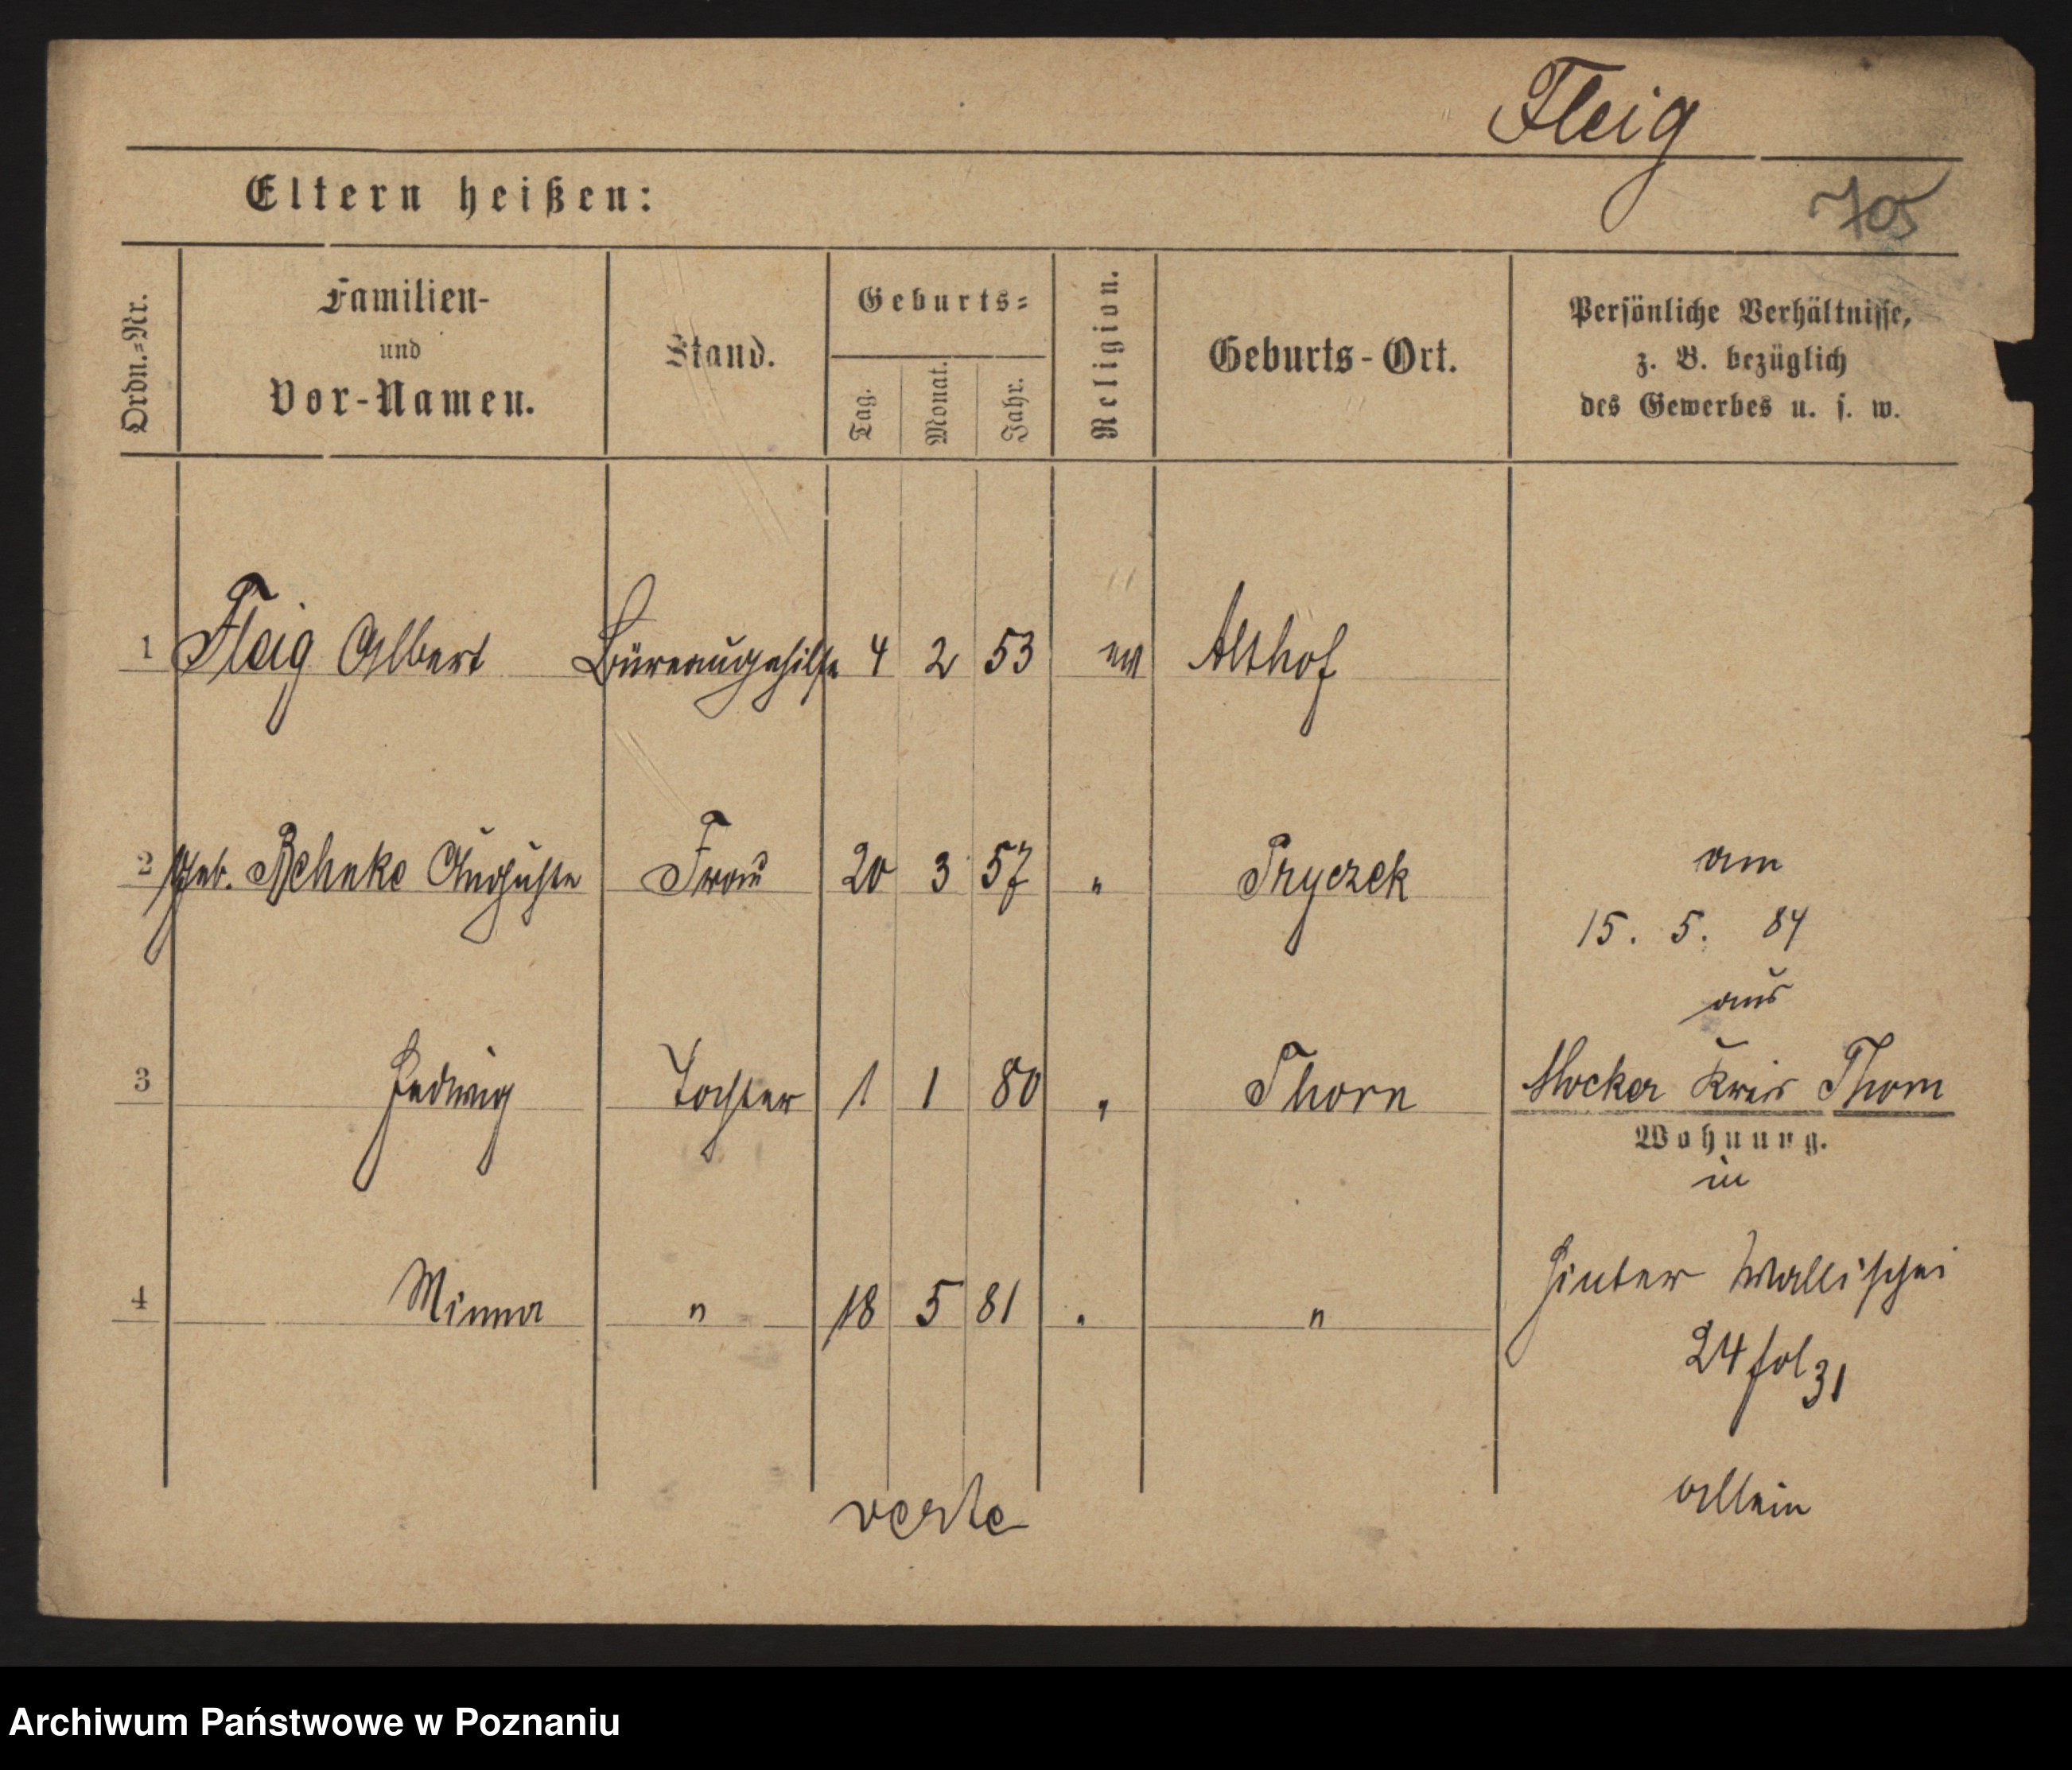 Fleig
Eltern heißen:
705
Ordn.=Nr.
Familien-
und
Vor-Namen.
Stand.
Geburts=
Tag.
Monat.
Jahr.
Religion.
Geburts-Ort.
Persönliche Verhältnisse,
z. B. bezüglich
des Gewerbes u. s. w.
1 Fleig Albert Büreaugehilfe 4 2 53 ev Althof
2 geb. Behnke Auguste Frau 20 3 57 " Pryczek
am
15. 5. 84
aus
3 Hedwig Tochter 1 1 80 " Thorn
Mocker Kreis Thorn
Wohnung.
in
4 Minna " 18 5 81 " "
Hinter Wallischei
24 fol 31
allein
verte
Archiwum Państwowe w Poznaniu